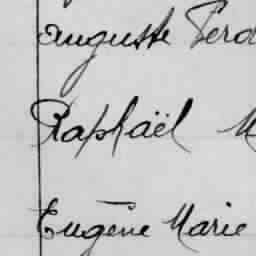 Auguste Ferd
Raphaël M
Eugène Marie